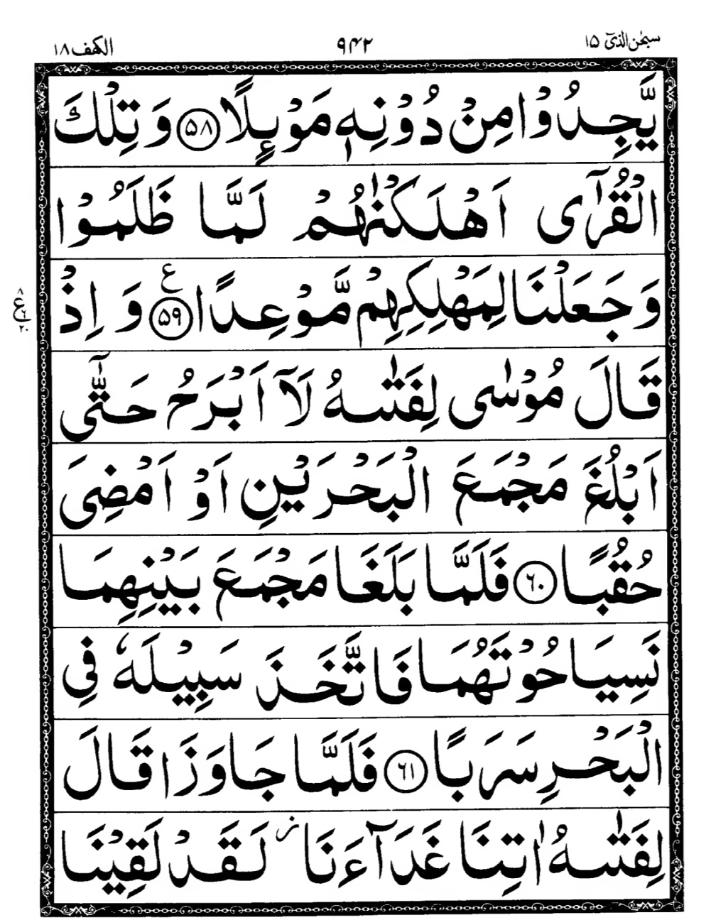 سبحٰن الذیٓ ۱۵ ۹۴۲ الکهف ۱۸
یَّجِدُوْا مِنْ دُوْنِهٖ مَوْئِلًا ﴿۵۸﴾ وَ تِلْكَ
الْقُرٰۤی اَهْلَكْنٰهُمْ لَمَّا ظَلَمُوْا
وَ جَعَلْنَا لِمَهْلِكِهِمْ مَّوْعِدًا ﴿۵۹﴾ ع وَ اِذْ
قَالَ مُوْسٰی لِفَتٰىهُ لَاۤ اَبْرَحُ حَتّٰۤی
اَبْلُغَ مَجْمَعَ الْبَحْرَیْنِ اَوْ اَمْضِیَ
حُقُبًا ﴿۶۰﴾ فَلَمَّا بَلَغَا مَجْمَعَ بَیْنِهِمَا
نَسِیَا حُوْتَهُمَا فَاتَّخَذَ سَبِیْلَهٗ فِی
الْبَحْرِ سَرَبًا ﴿۶۱﴾ فَلَمَّا جَاوَزَا قَالَ
لِفَتٰىهُ اٰتِنَا غَدَآءَنَا ز لَقَدْ لَقِیْنَا